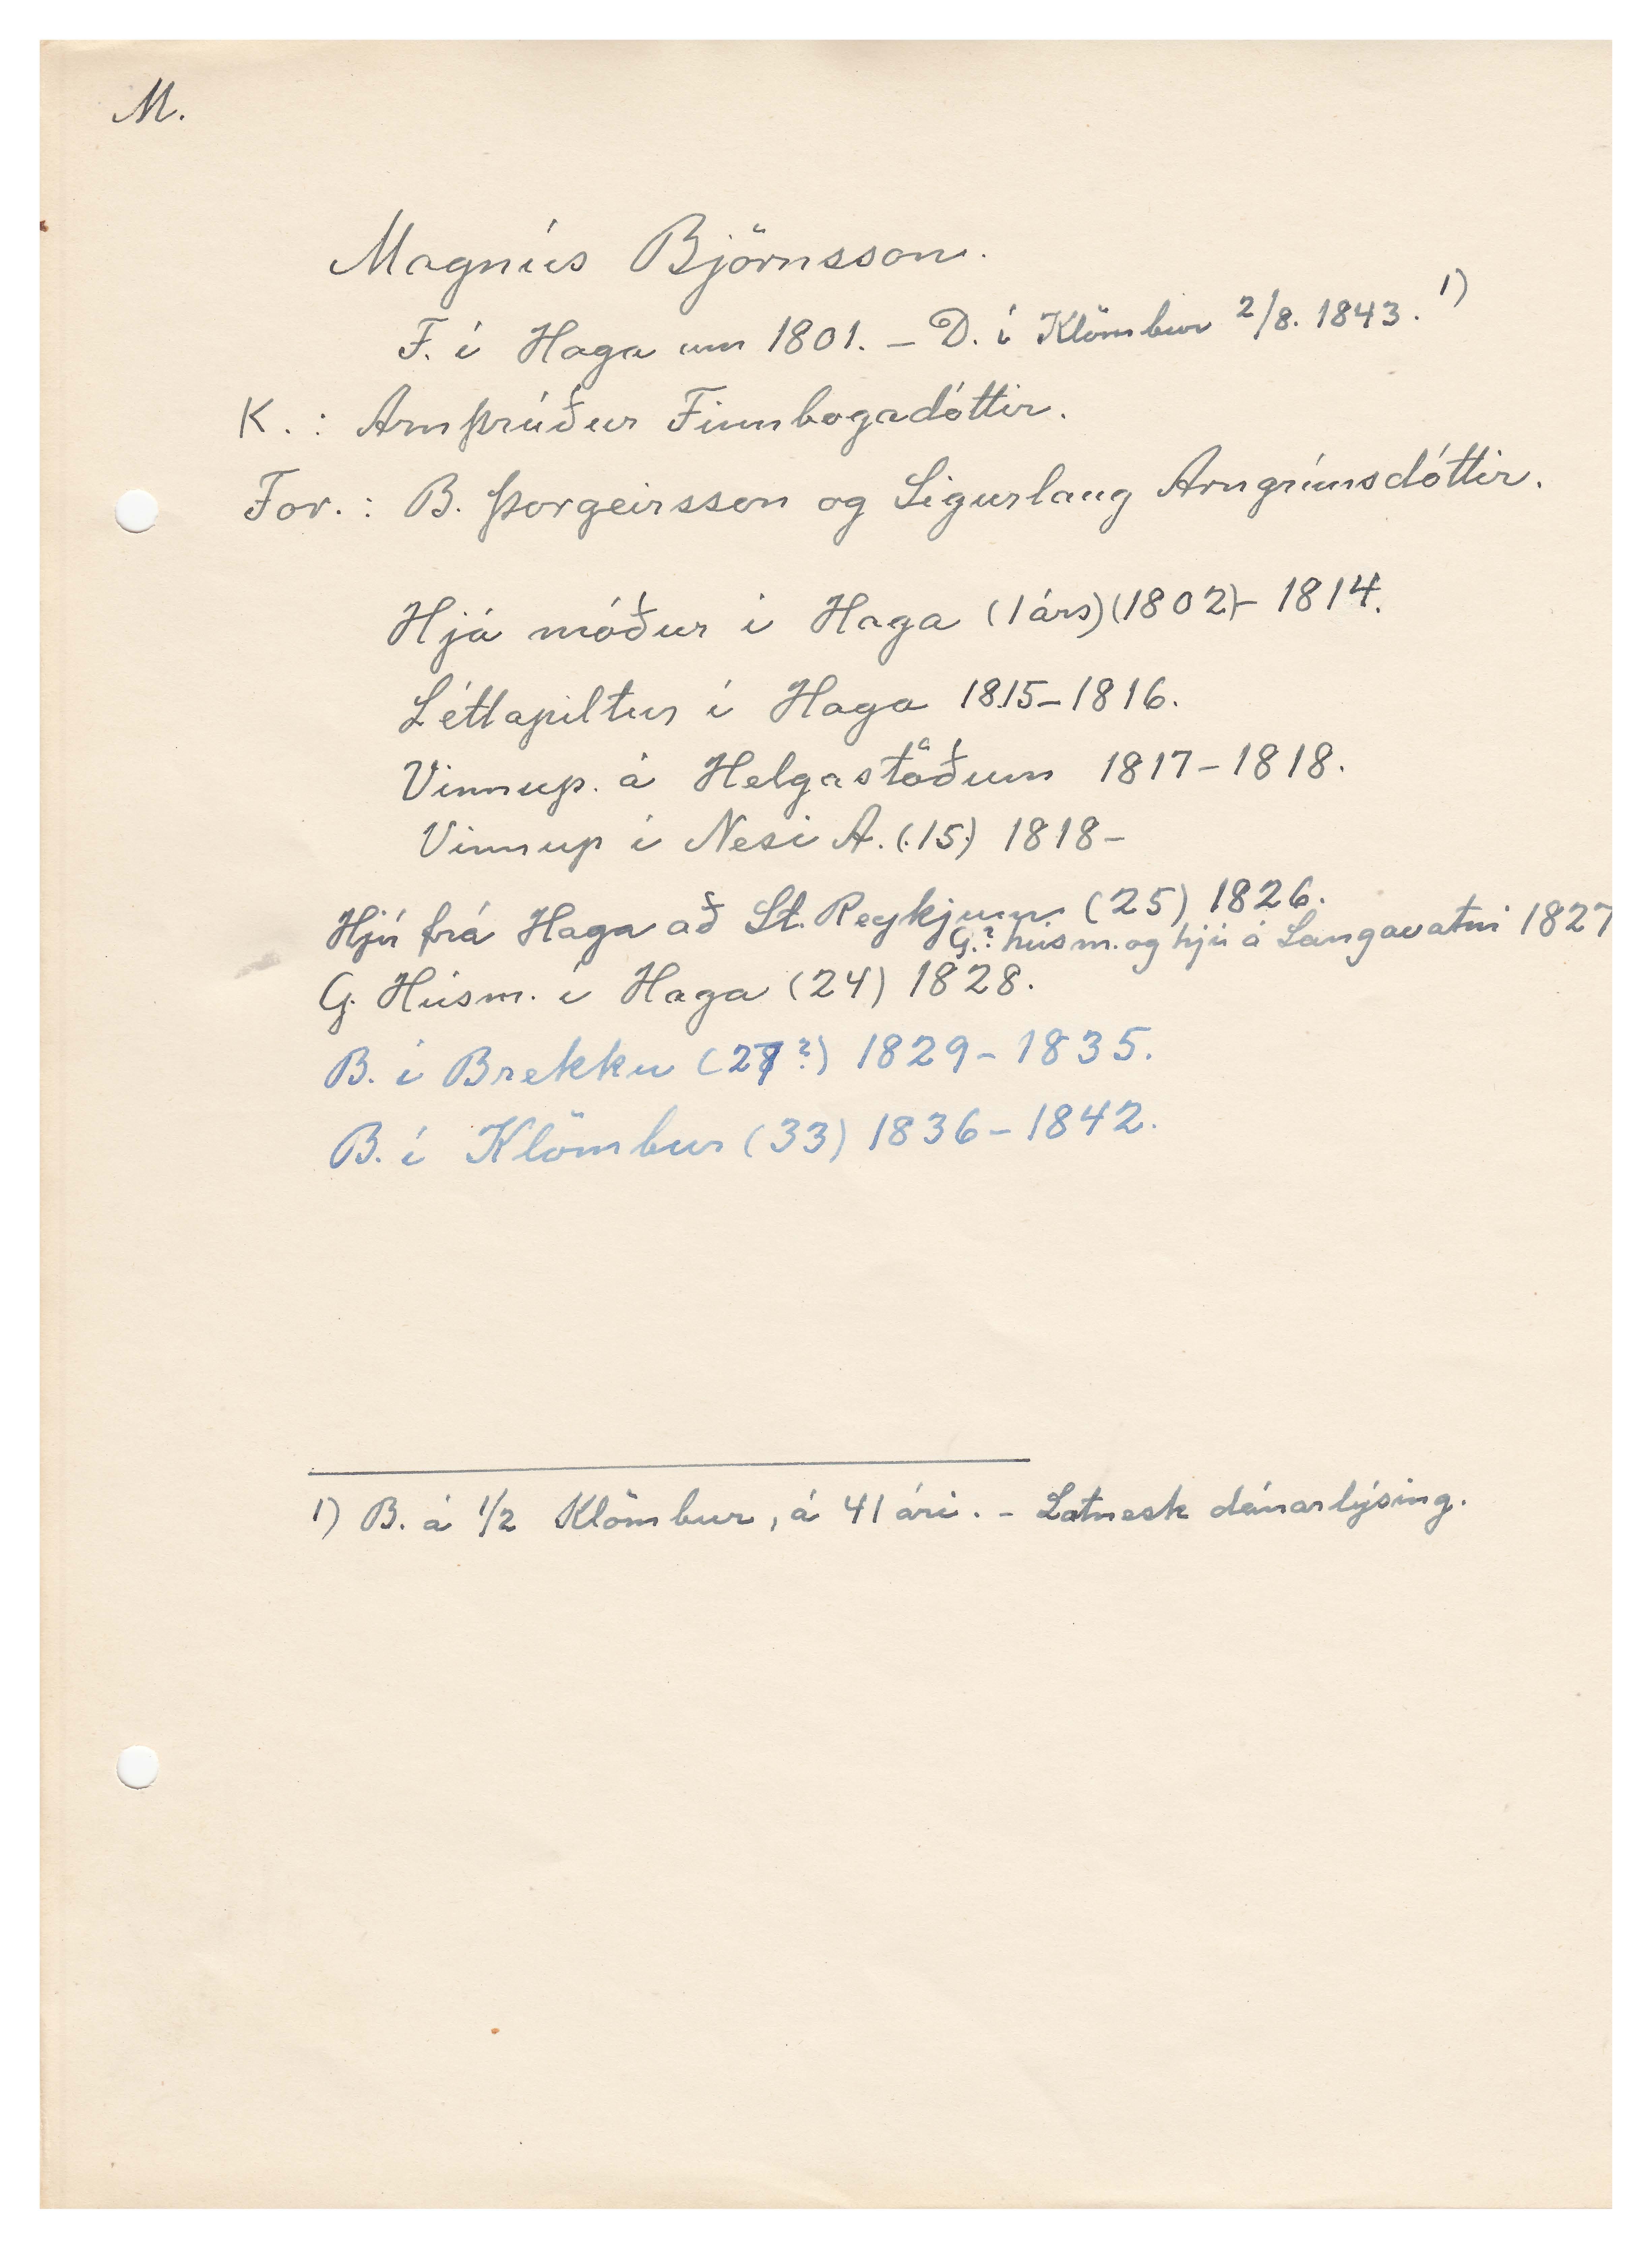 M.
Magnús Björnsson.
F. í Haga um 1801. – D. í Klömbur 2/8. 1843. 1)
K. : Arnþrúður Finnbogadóttir.
For. : B. Þorgeirsson og Sigurlaug Arngrímsdóttir.
Hjá móður í Haga (1 árs) (1802) – 1814.
Léttapiltur í Haga 1815 – 1816.
Vinnup. á Helgastöðum 1817 – 1818.
Vinnup í Nesi A. (15) 1818 –
Hjú frá Haga að St. Reykjum (25) 1826.
G.? húsm. og hjú á Langavatni 1827
G. Húsm. í Haga (24) 1828.
B. í Brekku (27?) 1829 – 1835.
B. í Klömbur (33) 1836 – 1842.
1) B. á 1/2 Klömbur, á 41 ári. – Latnesk dánarlýsing.